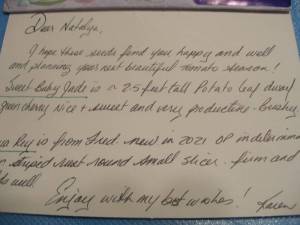 Dear Natalya,
I hope these seeds find you happy and well
and planning your next beautiful tomato season!
Sweet Baby Jade is a 2.5 feet tall Potato leaf dwarf
green cherry nice & sweet and very productive - bushy
Key is from Fred. new in 2021 OP indeterminate
striped sweet round small slicer - firm and
well
Enjoy with my best wishes!
Karen